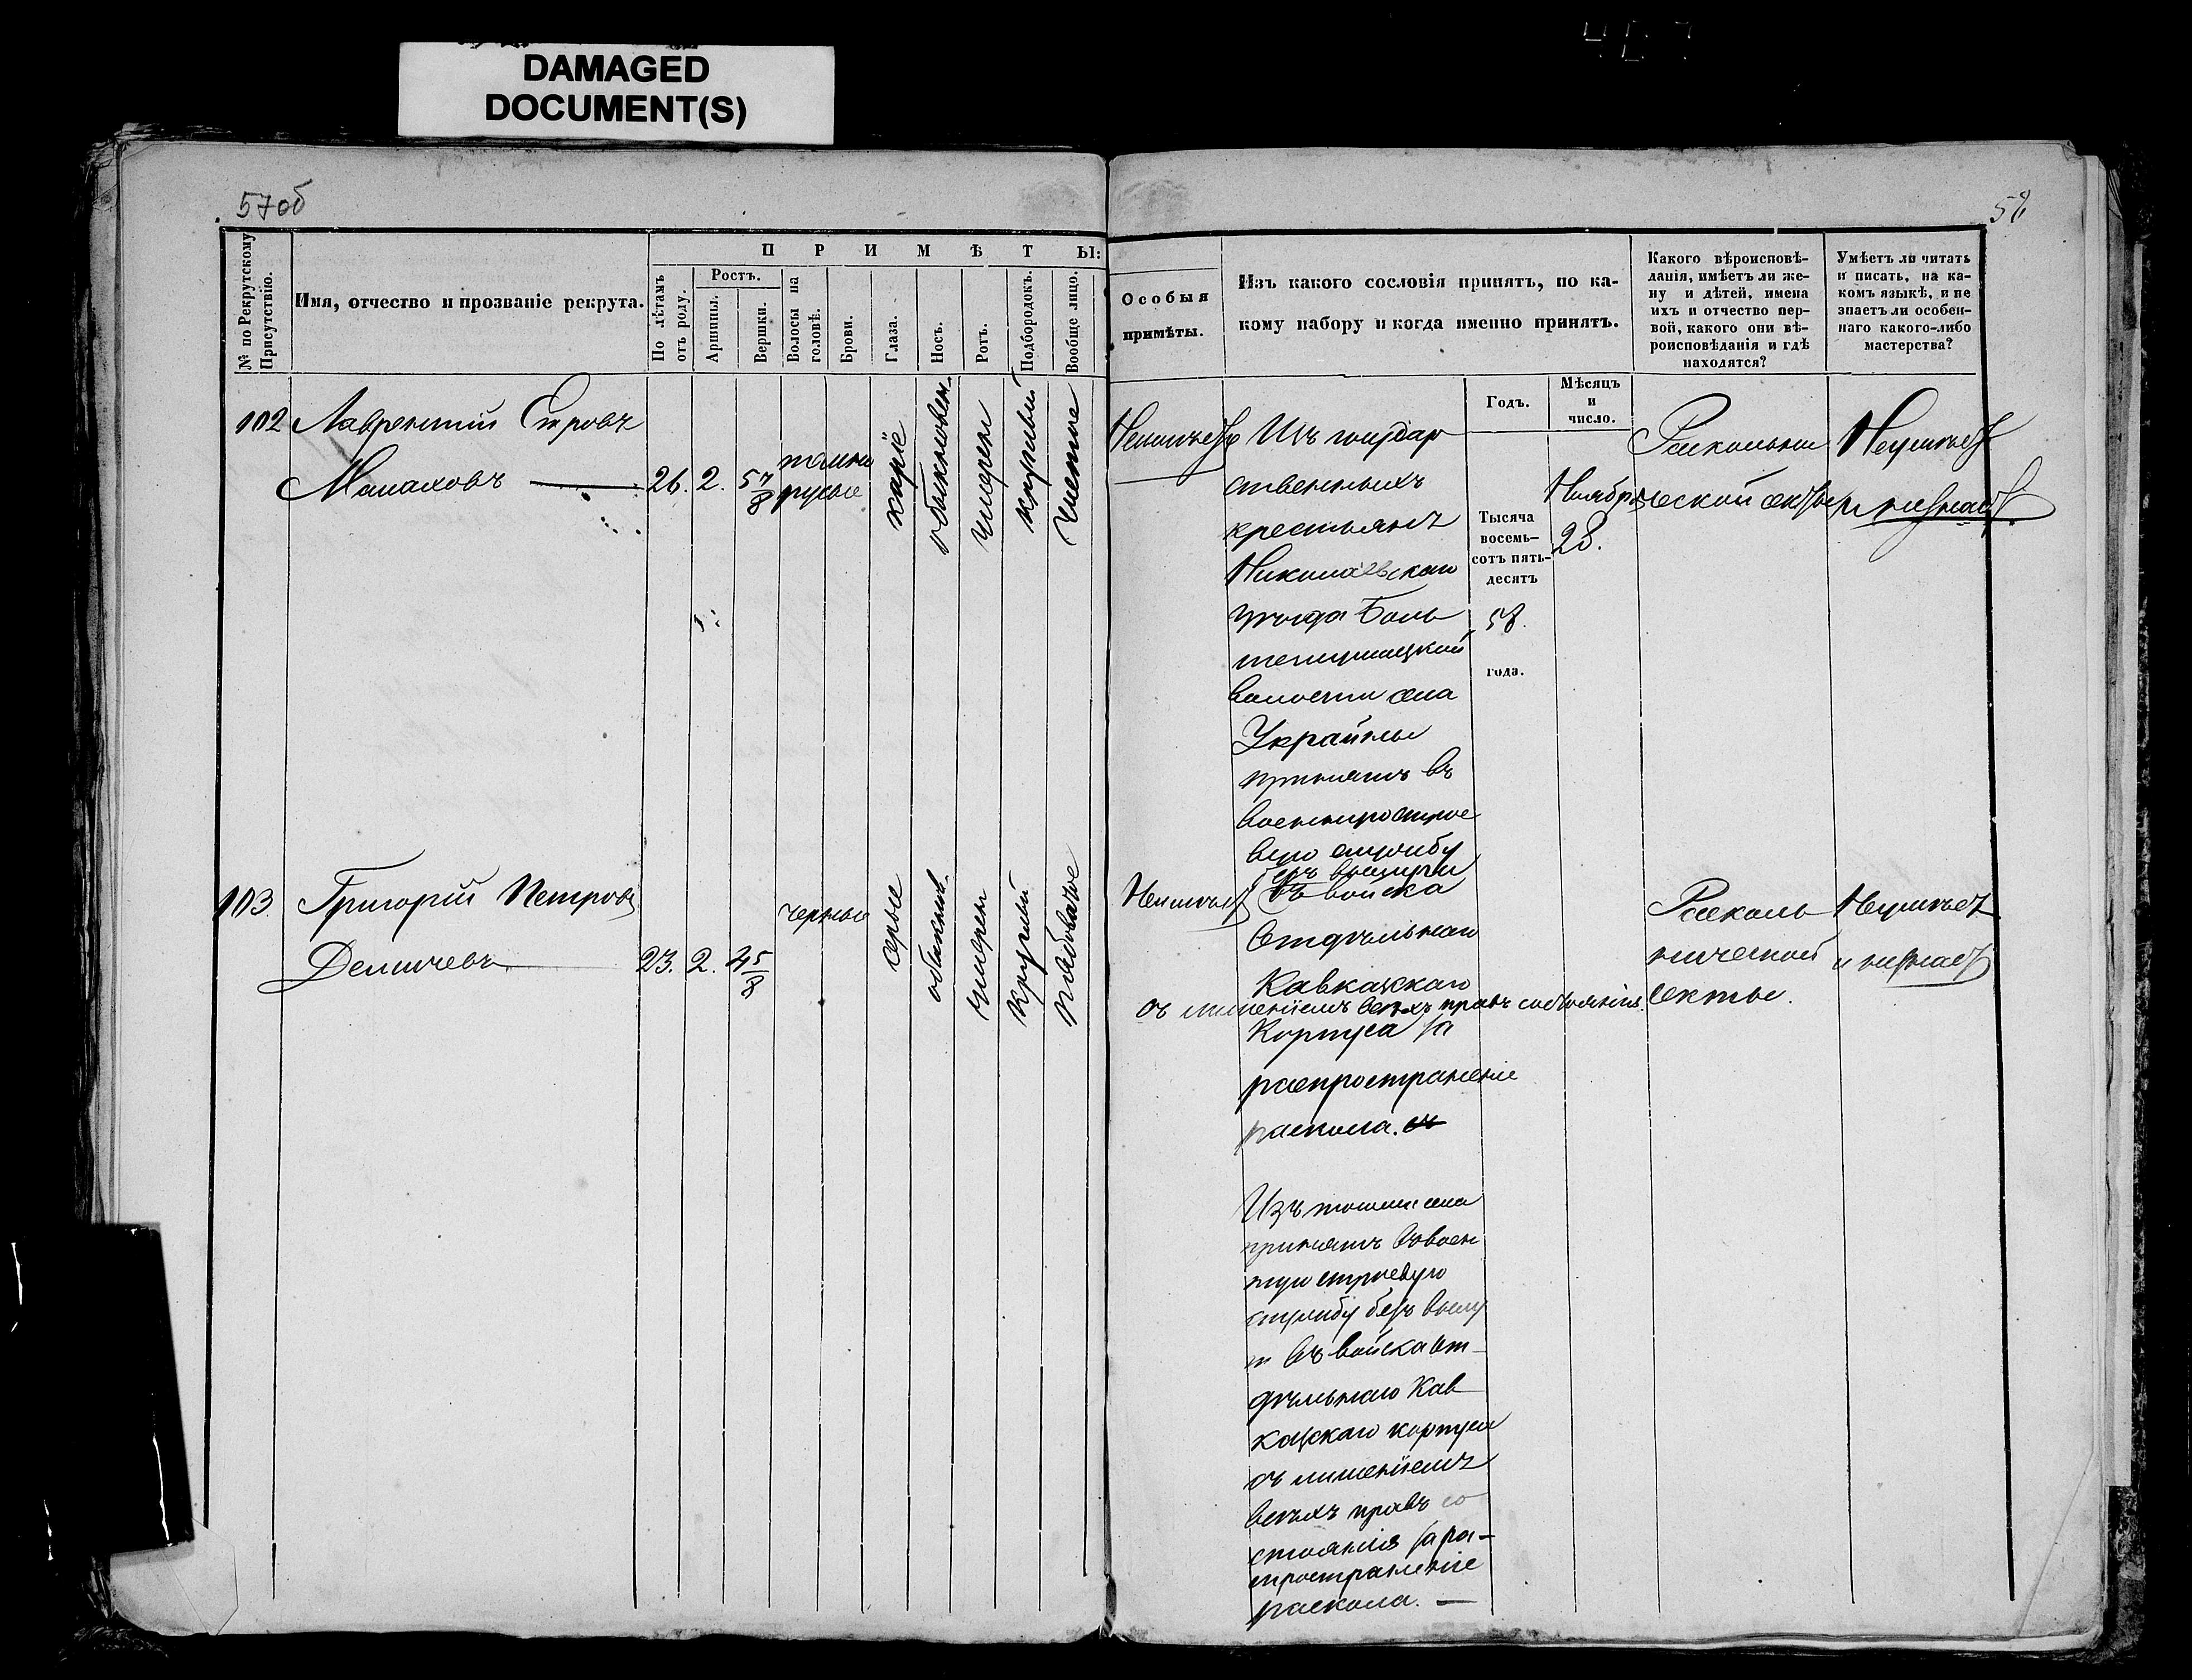 DAMAGED
DOCUMENT(S)
57об
№ по Рекрутскому Присутствію.
Имя, отчество и прозваніе рекрута.
ПРИМѢТЫ:
По лѣтамъ отъ роду.
Ростъ.
Аршины.
Вершки.
Волосы на головѣ.
Брови.
Глаза.
Носъ.
Ротъ.
Подбородокъ.
Вообще лицо.
102 Лаврентій
Малаховъ 26. 2. 5 7/8
темно
русые
каріе
обыкновен.
умѣрен
круглый
чистое
103. Григорій Петровъ
Демичевъ 23. 2. 4 5/8
черные
серые
обыкнов.
умѣрен
круглый
рябоватое
58
Особыя
примѣты.
Изъ какого сословія принятъ, по ка-
кому набору и когда именно принятъ.
Какого вѣроисповѣ-
данія, имѣетъ ли же-
ну и дѣтей, имена
ихъ и отчество пер-
вой, какого они вѣ-
роисповѣданія и гдѣ
находятся?
Умѣетъ ли читать
и писать, на ка-
комъ языкѣ, и не
знаетъ ли особен-
наго какого-либо
мастерства?
Годъ.
Мѣсяцъ
и
число.
Тысяча
восемь-
сотъ пять-
десятъ
58.
года.
Ноября
28.
Неимѣетъ
Изъ государ
ственныхъ
крестьянъ
Николаевскаго
уѣзда Боль
шеглушицкой
волости села
Украйны
принятъ въ
военнуюстрое
вую службу
безъ выслуги
въ войска
Отдѣльнаго
Кавказскаго
съ лишеніемъ всѣхъ правъ состоянія
Корпуса за
распространеніе
раскола. съ
Раскольни
ческой секты
Неумѣетъ
и незнаетъ.
Неимѣетъ
Изъ тогоже села
принятъ ввоен
ную строевую
службу безъ выслу
въ войска От
дѣльнаго Кав
казскаго корпуса
съ лишеніемъ
всѣхъ правъ со
стоянія за ра-
спространеніе
раскола.
Расколь
нической
секты.
Неумѣетъ
и незнаетъ